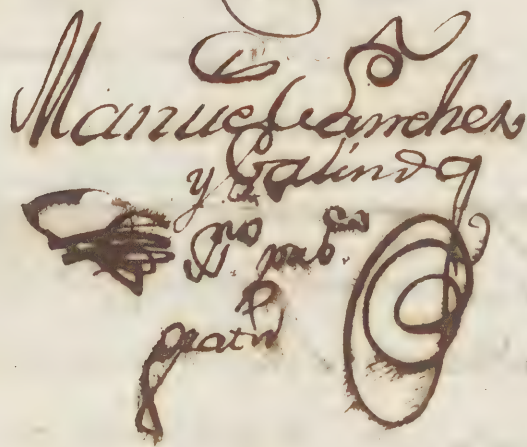 Manuel Sanchez
y Galindo
SSno. pubco.
gratis